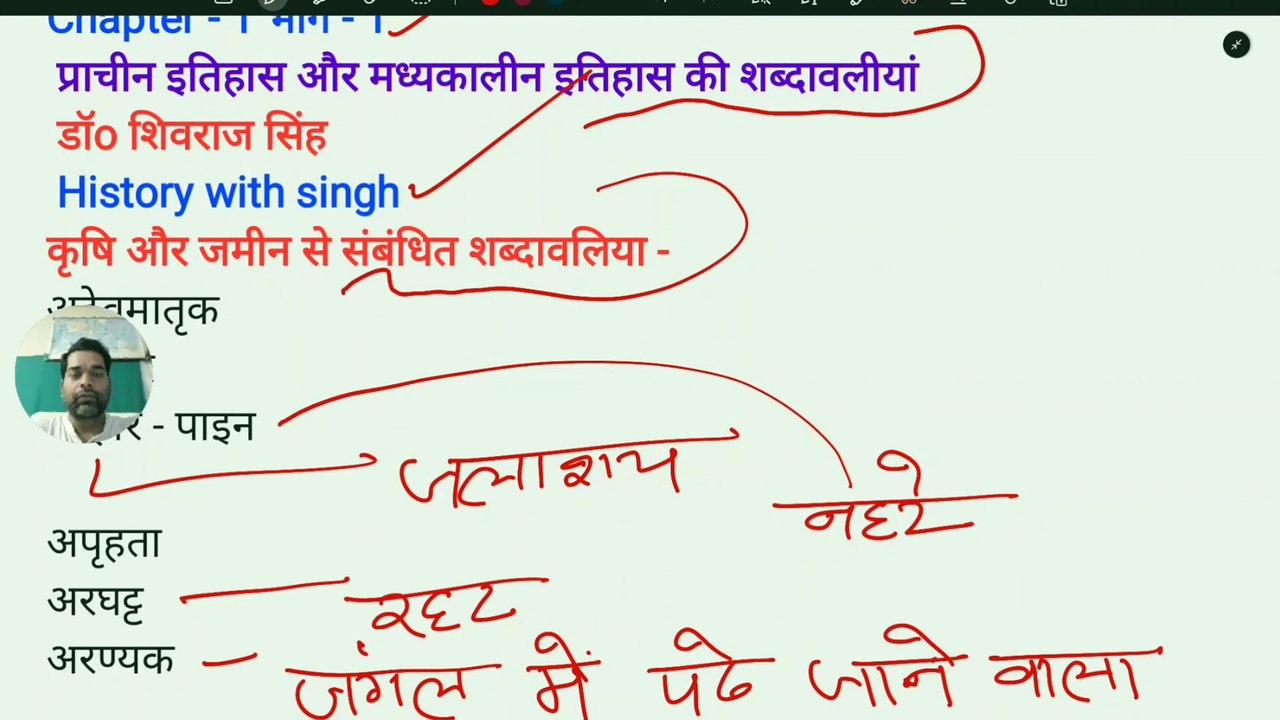 Chapter - 1 भाग - 1
प्राचीन इतिहास और मध्यकालीन इतिहास की शब्दावलीयां
डॉ० शिवराज सिंह
History with singh
कृषि और जमीन से संबंधित शब्दावलिया -
- पाइन
जलाशय
नहरे
अपृहता
अरघट्ट
रहट
अरण्यक - जंगल में पढे जाने वाला